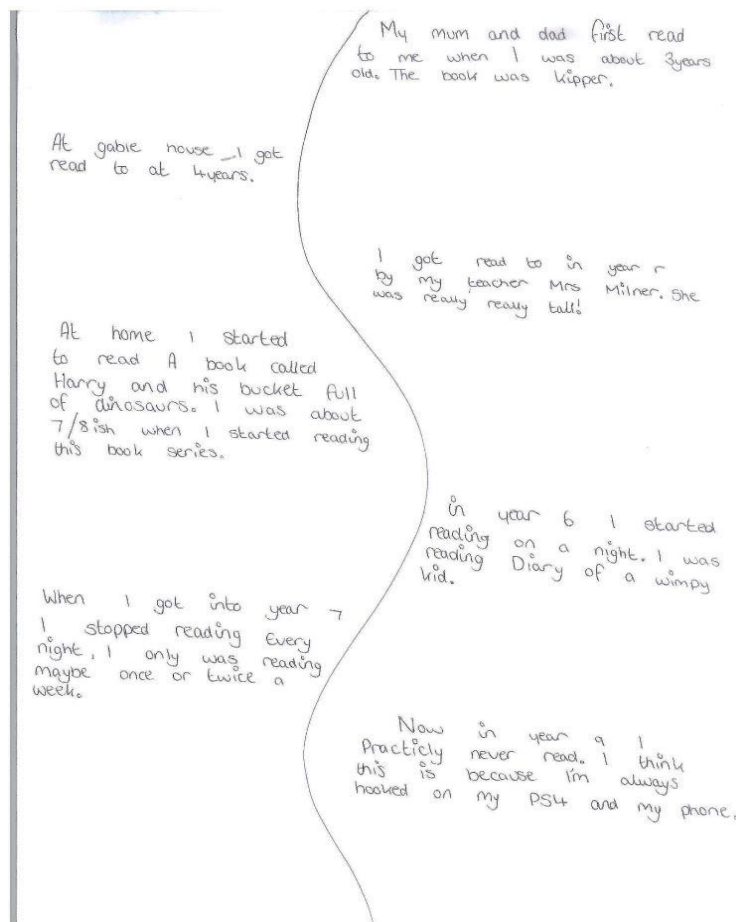 My mum and dad first read
to me when I was about 3years
old. The book was kipper.
At gabie house I got
read to at 4years.
I got read to in year r
by my teacher Mrs Milner. She
was really really tall!
At home I started
to read A book called
Harry and his bucket full
of dinosaurs. I was about
7/8ish when I started reading
this book series.
in year 6 I started
reading on a night. I was
reading Diary of a wimpy
kid.
When I got into year 7
I stopped reading Every
night. I only was reading
maybe once or twice a
week.
Now in year 9 I
Practicly never read. I think
this is because I'm always
hooked on my PS4 and my phone.